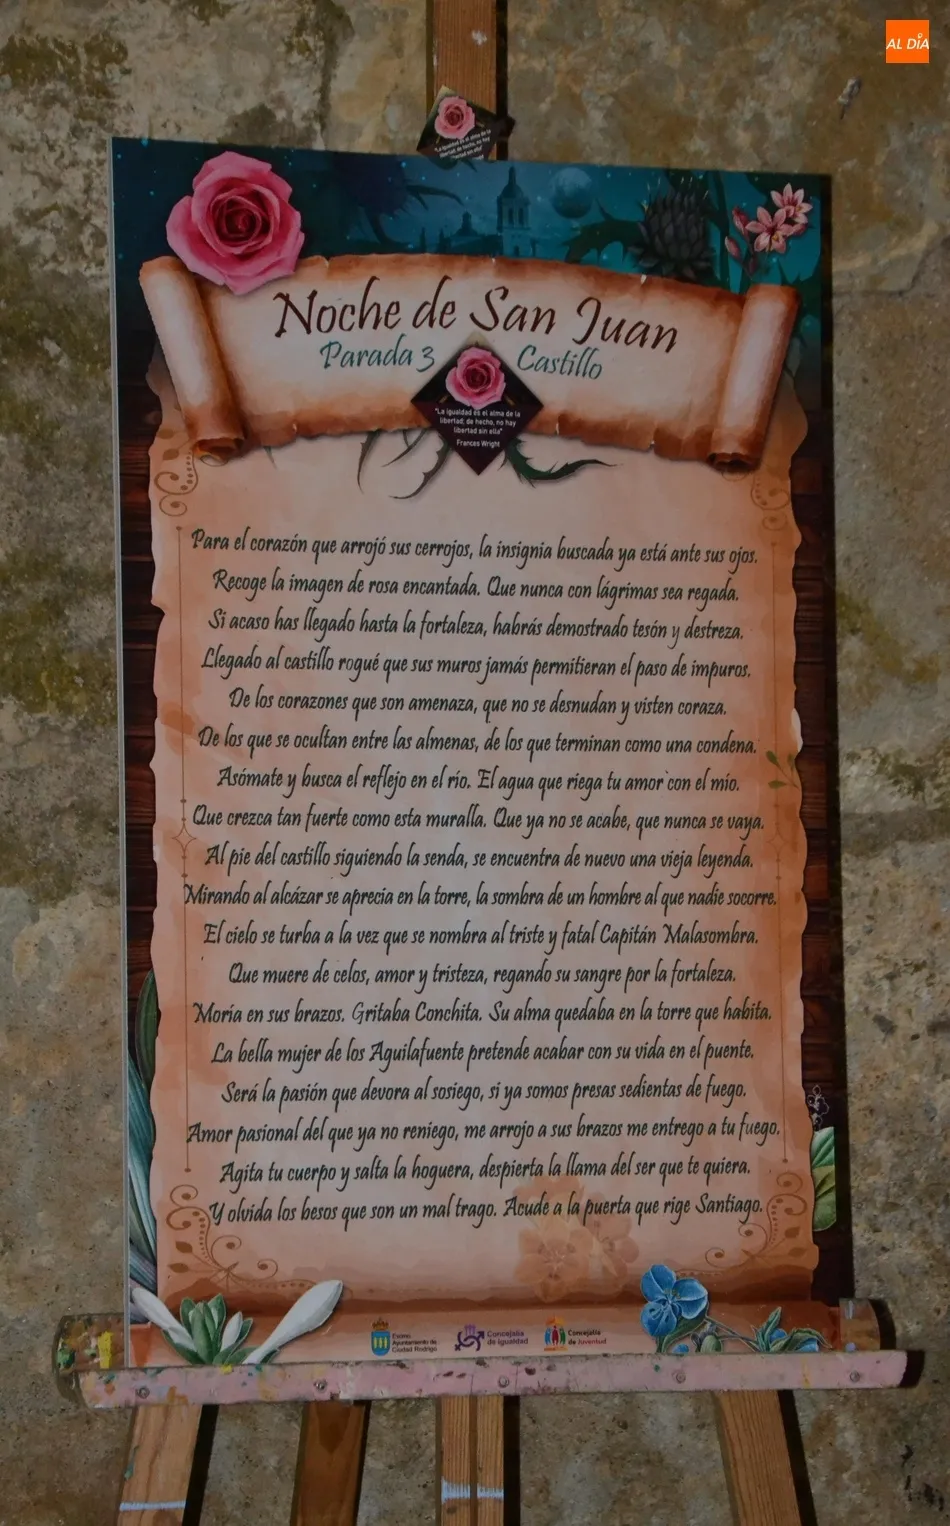 AL DÍA
"La igualdad es el alma de la
libertad; de hecho, no hay
libertad sin ella"
Noche de San Juan
Parada 3 Castillo
"La igualdad es el alma de la
libertad; de hecho, no hay
libertad sin ella"
Frances Wright
Para el corazón que arrojó sus cerrojos, la insignia buscada ya está ante sus ojos.
Recoge la imagen de rosa encantada. Que nunca con lágrimas sea regada.
Si acaso has llegado hasta la fortaleza, habrás demostrado tesón y destreza.
Llegado al castillo rogué que sus muros jamás permitieran el paso de impuros.
De los corazones que son amenaza, que no se desnudan y visten coraza.
De los que se ocultan entre las almenas, de los que terminan como una condena.
Asómate y busca el reflejo en el río. El agua que riega tu amor con el mío.
Que crezca tan fuerte como esta muralla. Que ya no se acabe, que nunca se vaya.
Al pie del castillo siguiendo la senda, se encuentra de nuevo una vieja leyenda.
Mirando al alcázar se aprecia en la torre, la sombra de un hombre al que nadie socorre.
El cielo se turba a la vez que se nombra al triste y fatal Capitán Malasombra.
Que muere de celos, amor y tristeza, regando su sangre por la fortaleza.
Moría en sus brazos. Gritaba Conchita. Su alma quedaba en la torre que habita.
La bella mujer de los Aguilafuente pretende acabar con su vida en el puente.
Será la pasión que devora al sosiego, si ya somos presas sedientas de fuego.
Amor pasional del que ya no reniego, me arrojo a sus brazos me entrego a tu fuego.
Agita tu cuerpo y salta la hoguera, despierta la llama del ser que te quiera.
Y olvida los besos que son un mal trago. Acude a la puerta que rige Santiago.
Excmo.
Ayuntamiento de
Ciudad Rodrigo
Concejalía
de Igualdad
Concejalía
de Juventud